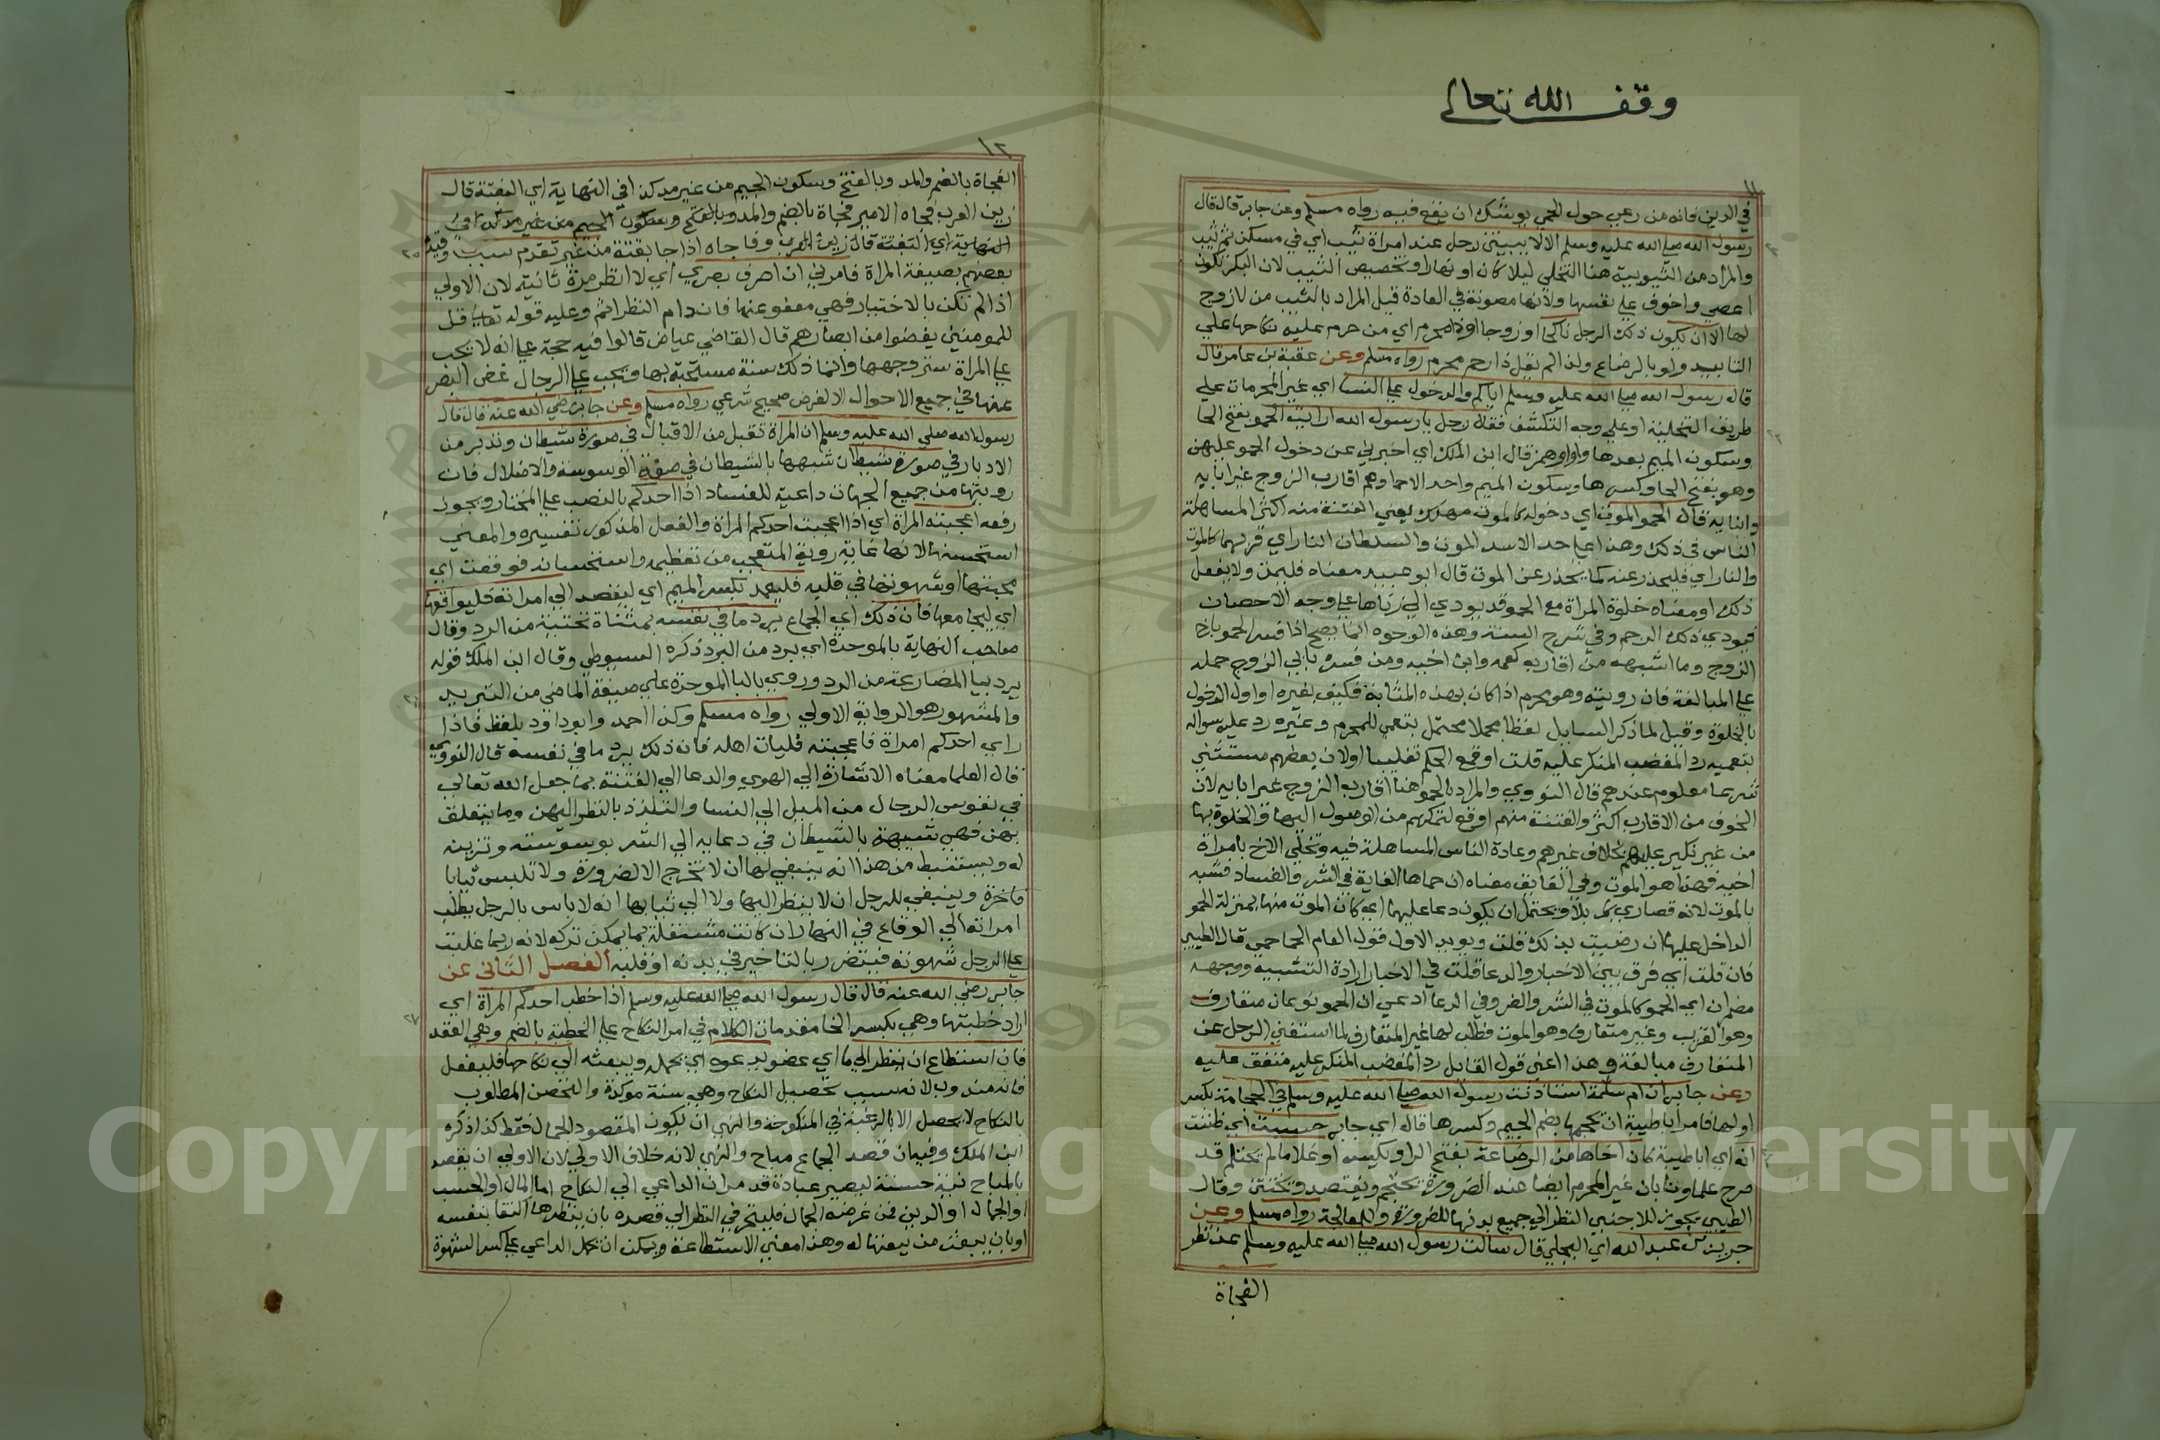 وقف الله تعالى
١١
في الدين فانه من رعي حول الحمي يوشك ان يقع فيه رواه مسلم وعن جابر قال قال
رسول الله صلى الله عليه وسلم الا لا يبيتن رجل عند امراة ثيب اي في مسكن ثيب
والمراد من الثيوبية هنا التخلي ليلا كان او نهارا وتخصيص الثيب لان البكر تكون
اعصي واخوف علي نفسها ولانها مصونة في العادة قيل المراد بالثيب من لا زوج
لها الا ان يكون ذلك الرجل ناكحا اي زوجا او ذا محرم اي من حرم عليه نكاحها علي
التابيد ولو بالرضاع ولذا لم يقل ذا رحم محرم رواه مسلم وعن عقبة بن عامر قال
قال رسول الله صلى الله عليه وسلم اياكم والدخول علي النسا اي غير المحرمات علي
طريق التخلية او علي وجه التكشف فقال رجل يا رسول الله ارايت الحمو بفتح الحا
وسكون الميم بعدها واو وهمز قال ابن الملك اي اخبرني عن دخول الحمو عليهن
وهو بفتح الحا وكسرها وسكون الميم واحد الاحما وهم اقارب الزوج غير ابايه
وابنايه قال الحمو الموت اي دخوله كالموت مهلك يعني الفتنة منه اكثر المساهلة
الناس في ذلك وهذا علي حد الاسد الموت والسلطان النار اي قربهما كالموت
والنار اي فليحذر عنه كما يحذر عن الموت قال ابو عبيد معناه فليمت ولا يفعل
ذلك او معناه خلوة المراة مع الحمو قد يودي الي زناها علي وجه الاحصان
فيودي ذلك الرجم وفي شرح السنة وهذه الوجوه انما يصح اذا فسر الحمو باخ
الزوج وما اشبهه من اقاربه كعمه وابن اخيه ومن فسره بابي الزوج حمله
علي المبالغة فان رويته وهو محرم اذا كان بهذه المثابة فكيف بغيره او اول الدخول
بالخلوة وقيل لما ذكر السايل لفظا مجملا محتمل بتعمي للمحرم وغيره رد عليه سواله
بتعميه رد المغضب المنكر عليه قلت اوقع الحكم تغليبا اولان بعضهم مستثني
شرعا معلوم عندهم قال النووي والمراد بالحمو هنا اقارب الزوج غير ابايه لان
الخوف من الاقارب اكثر والفتنة منهم اوقع لتمكنهم من الوصول اليها والخلوة بها
من غير نكير عليهم بخلاف غيرهم وعادة الناس المساهلة فيه وتخلي الاخ بامراة
اخيه فهذا هو الموت وفي الفايق معناه ان حماها الغاية في الشر والفساد فشبه
بالموت لانه قصاري كل بلاء ويحتمل ان يكون دعا عليها اي كان الموت منها بمنزلة الحمو
الداخل عليها ان رضيت بذلك قلت ويويد الاول قول العام الحما حمي قال الطيبي
فان قلت اي فرق بين الاخبار والدعا قلت في الاخبار ارادة التشبيه ووجهه
مضمران اي الحمو كالموت في الشر والضر وفي الدعا ادعي ان الحمو نوعان متعارف
وهو القريب وغير متعارف وهو الموت فطلب لها غير المتعارف لما استفتي الرجل عن
المتعارف مبالغة وهذا اعني قول القايل رد المغضب المنكر عليه متفق عليه
وعن جابر ان ام سلمة استاذنت رسول الله صلى الله عليه وسلم في الحجامة بكسر
اوله فامر ابا طيبة ان يحجمها بضم الجيم وكسرها قال اي جابر حسبت اي ظننت
انه اي ابا طيبة كان اخاها من الرضاعة بفتح الرا وبكسره او غلاما لم يحتلم قد
صرح علماونا بان غير المحرم ايضا عند الضرورة تحتجم ويفتصد ويختتن وقال
الطيبي يجوز للاجنبي النظر الي جميع بدنها للضرورة وللمعالجة رواه مسلم وعن
جرير بن عبد الله اي البجلي قال سالت رسول الله صلى الله عليه وسلم عن نظر
الفجاة
١٢
الفجاة بالضم والمد وبالفتح وسكون الجيم من غير مد كذا في النهاية اي البغتة قال
زين العرب فجاه الامير فجاة بالضم والمد وبالفتح وسكون الجيم من غير مد كذا في
النهاية اي البغتة قال زين العرب وفاجاه اذا جا بغتة من غير تقدم سبب وقيده
بعضهم بصيغة المراة فامرني ان اصرف بصري اي لا انظر مرة ثانية لان الاولي
اذا لم تكن بالاختيار فهي معفو عنها فان دام النظر اثم وعليه قوله تعالي قل
للمومنين يغضوا من ابصارهم قال القاضي عياض قالوا فيه حجة علي انه لا يجب
علي المراة ستر وجهها وانما ذلك سنة مستحبة بها ويجب علي الرجال غض البصر
عنها في جميع الاحوال الا لغرض صحيح شرعي رواه مسلم وعن جابر رضي الله عنه قال قال
رسول الله صلى الله عليه وسلم ان المراة تقبل من الاقبال في صورة شيطان وتدبر من
الادبار في صورة شيطان شبهها بالشيطان في صفة الوسوسة والاضلال فان
رويتها من جميع الجهات داعية للفساد اذا احدكم بالنصب علي المختار ويجوز
رفعه اعجبته المراة اي اذا اعجبت احدكم المراة والفعل المذكور تفسيره والمعني
استحسنها لانها غاية روية المتعجب من تعظيمه واستحسانه فوقعت اي
محبتها او شهوتها في قلبه فليعمد بكسر الميم اي ليقصد الي امراته فليواقعها
اي ليجامعها فان ذلك اي الجماع يرد ما في نفسه بمثناة تحتية من الرد وقال
صاحب النهاية بالموحدة اي يبرد من البرد ذكره السيوطي وقال ابن الملك قوله
يرد بيا المضارعة من الرد وروي بالبا الموحدة علي صيغة الماضي من التبريد
والمشهور هو الرواية الاولي رواه مسلم وكذا احمد وابو داود بلفظ فاذا
راي احدكم امراة فاعجبته فليات اهله فان ذلك يرد ما في نفسه قال النووي
قال العلما معناه الاشارة الي الهوي والدعا الي الفتنة بما جعل الله تعالي
في نفوس الرجال من الميل الي النسا والتلذذ بالنظر اليهن وما يتعلق
بهن فهي شبيهة بالشيطان في دعايه الي الشر بوسوسته وتزيينه
له ويستنبط من هذا انه ينبغي لها ان لا تخرج الا لضرورة ولا تلبس ثيابا
فاخرة وينبغي للرجل ان لا ينظر اليها ولا الي ثيابها انه لا باس بالرجل يطلب
امراته الي الوقاع في النهار وان كانت مشتغلة بما يمكن تركه لانه ربما غلبت
علي الرجل شهوته فيتضرر بالتاخير في بدنه او قلبه الفصل الثاني عن
جابر رضي الله عنه قال قال رسول الله صلى الله عليه وسلم اذا خطب احدكم المراة اي
اراد خطبتها وهي بكسر الخا مقدمات الكلام في امر النكاح علي الخطبة بالضم وهي العقد
فان استطاع ان ينظر الي ما اي عضو يدعوه اي يحمله ويبعثه الي نكاحها فليفعل
فانه مندوب لانه سبب تحصيل النكاح وهي سنة موكدة والتحصن المطلوب
بالنكاح لا يحصل الا بالرغبة في المنكوحة والنهي ان يكون المقصود الجمال فقط كذا ذكره
ابن الملك وفيه ان قصد الجماع مباح والنهي لانه خلاف الاولي لان الاولي ان يقصد
بالمباح نية حسنة ليصير عبادة قد مر ان الداعي الي النكاح اما المال او الحسب
او الجمال او الدين فمن غرضه الجمال فليتحر في النظر الي قصده بان ينظرها التقا بنفسه
او بان يبعث من ينعتها له وهذا معني الاستطاعة ويمكن ان يحمل الداعي علي كسر الشهوة
Copyright © King Saud University